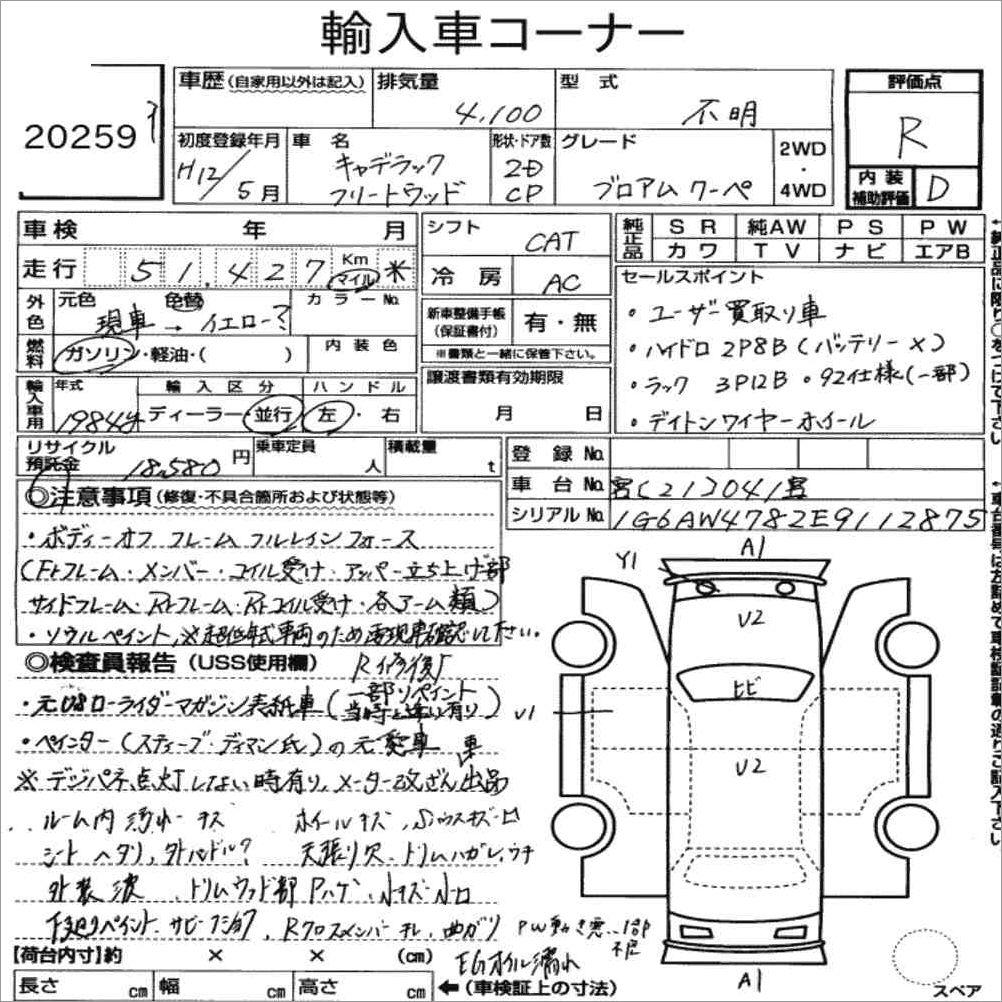 輸入車コーナー
20259
車歴(自家用以外は記入) 排気量 4,100 型式 不明
評価点 R
初度登録年月 H12/5月 車名 キャデラック フリートウッド 形状・ドア数 2D CP グレード ブロアム クーペ 2WD・4WD
内装補助評価 D
車検 年 月 シフト CAT
純正品 SR 純AW PS PW
カワ TV ナビ エアB
走行 51,427 Km マイル ※ 冷房 AC
セールスポイント
外色 元色 色替 カラーNo.
現車→イエローマ
新車整備手帳(保証書付) 有・無
※書類と一緒に保管下さい。
・ユーザー買取り車
・ハイドロ 2P8B(バッテリー×)
・ラック 3P12B・92仕様(一部)
・デイトンワイヤーホイール
燃料 ガソリン・軽油・( ) 内装色
輸入車用 年式 1984年 輸入区分 ディーラー・並行 ハンドル 左・右
譲渡書類有効期限 月 日
リサイクル預託金 18,580円 乗車定員 人 積載量 t
登録No.
車台No. 宮[21]2041宮
シリアルNo. 1G6AW4782E9112875
◎注意事項(修復・不具合箇所および状態等)
・ボディーオフ フレーム フルレインフォース
(Ftフレーム・メンバー・コイル受け・アッパー立ち上げ部
サイドフレーム・Rrフレーム・Rrコイル受け・各アーム類)
・ソウルペイント、※超低年式車両のため要現車確認して下さい。
◎検査員報告(USS使用欄) R修復歴
・元08ローライダーマガジン表紙車(一部リペイント 当時と違い有り)
・ペインター(スティーブ・ディマン氏)の元愛車 車
※デジパネ点灯しない時有り、メーター改ざん出品
ルーム内汚れキズ ホイールキズ
シートヘタリ、外ハンドル? 天張り欠、トリムハガレ、ウキ
外装波、トリムウッド部Pハゲ、小キズ小凹
下廻りペイント、サビ Rクロスメンバー 曲ガリ PW動き悪、1部不良
EGオイル漏れ
【荷台内寸】約 × × (cm)
長さ cm 幅 cm 高さ cm ←(車検証上の寸法)
Y1
A1
U2
ヒビ
U1
U2
A1
スペア
↑純正品に限り○をつけて下さい
↑車台番号は方詰めで車検証記載の通りご記入下さい